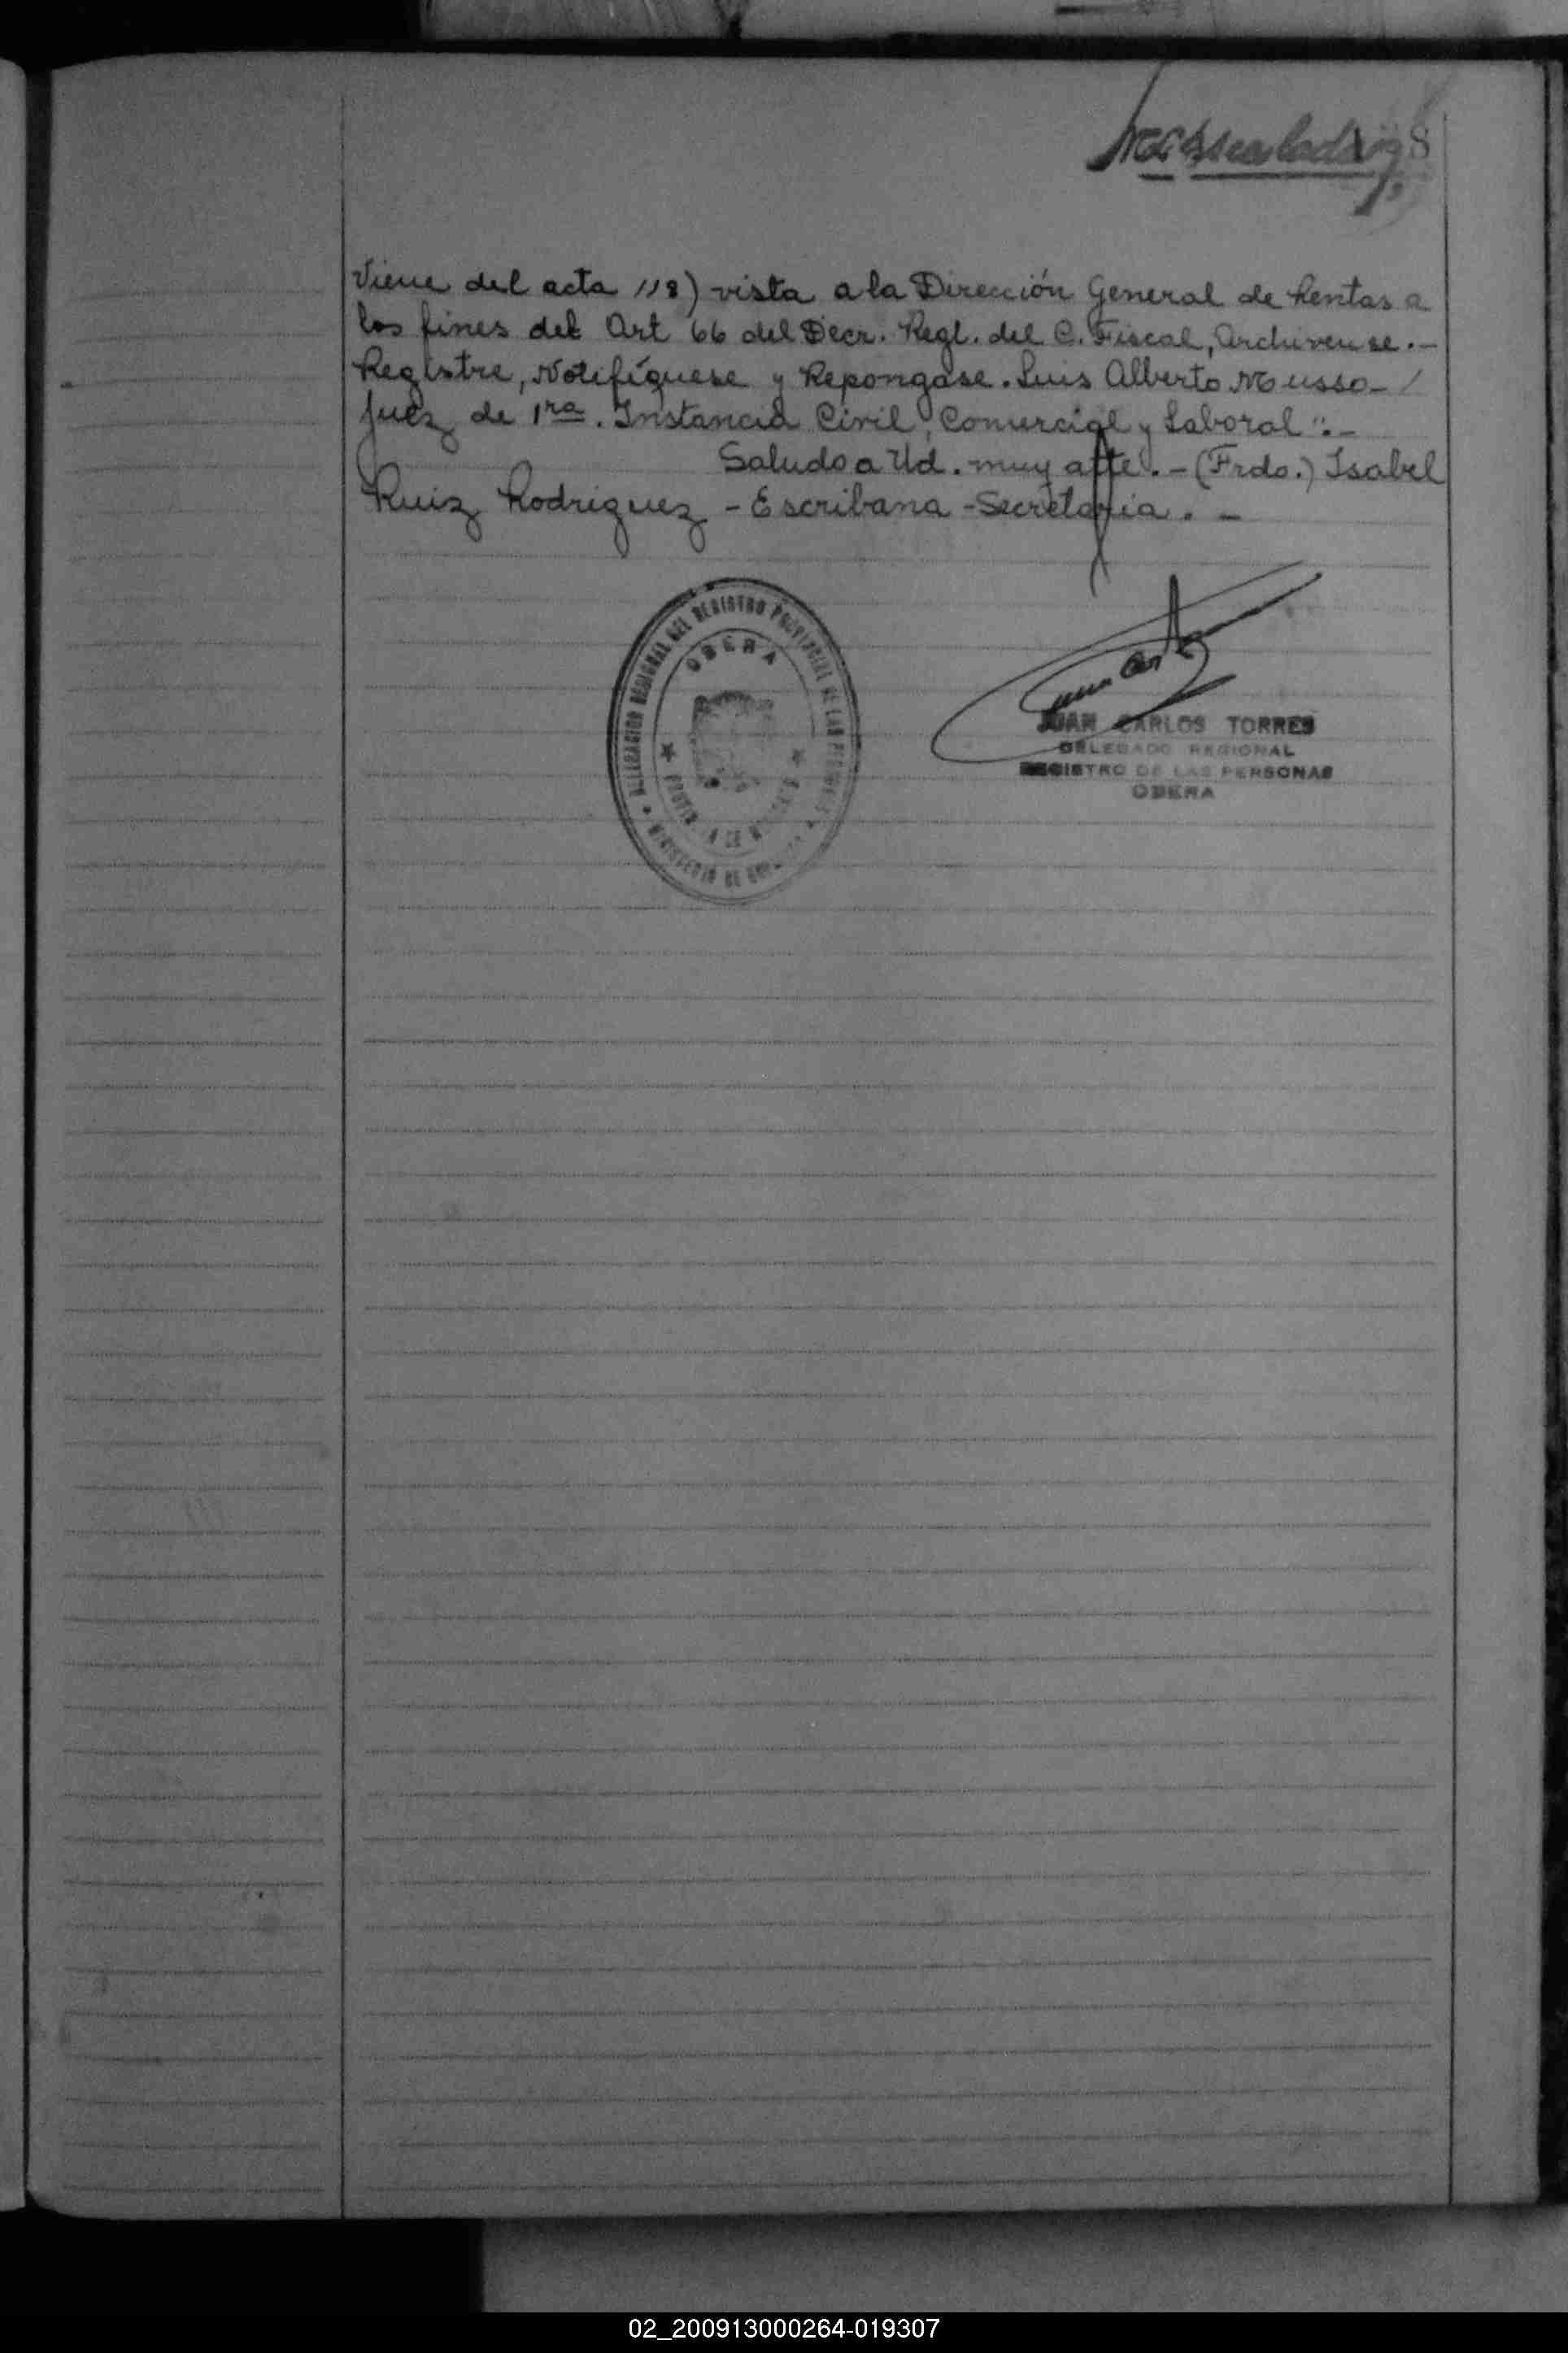 8
Viene del acta 118) vista a la Dirección General de Rentas a
los fines del Art 66 del Decr. Regl. del C. Fiscal, Archivense.-
Registre, Notifíquese y Repongase. Luis Alberto Musso- /
Juez de 1ra. Instancia Civil, Comercial y Laboral".-
Saludo a Ud. muy atte. - (Frdo.) Isabel
Ruiz Rodriguez - Escribana - Secretaria. -
DELEGACION REGIONAL DEL REGISTRO PROVINCIAL DE LAS PERSONAS
OBERA
MINISTERIO DE
JUAN CARLOS TORRES
DELEGADO REGIONAL
REGISTRO DE LAS PERSONAS
OBERA
02_200913000264-019307